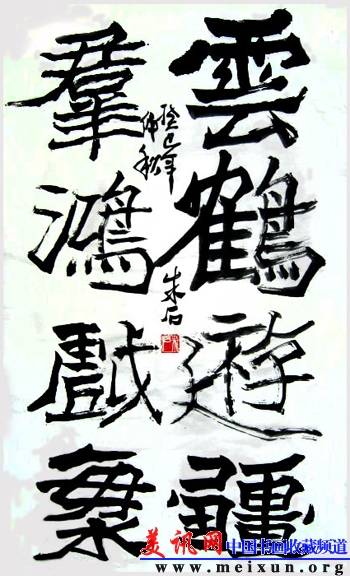 雲鶴遊疆
羣鴻戲
癸巳年
仲秋
朱石
美讯网
中国书画收藏频道
www.meixun.org